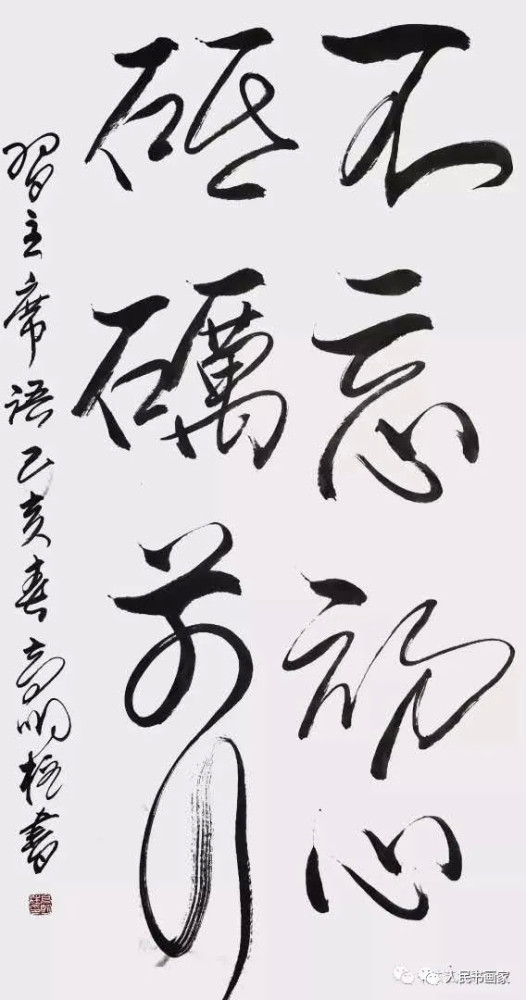 不忘初心
砥礪前行
習主席语己亥春高明柱書
人民书画家